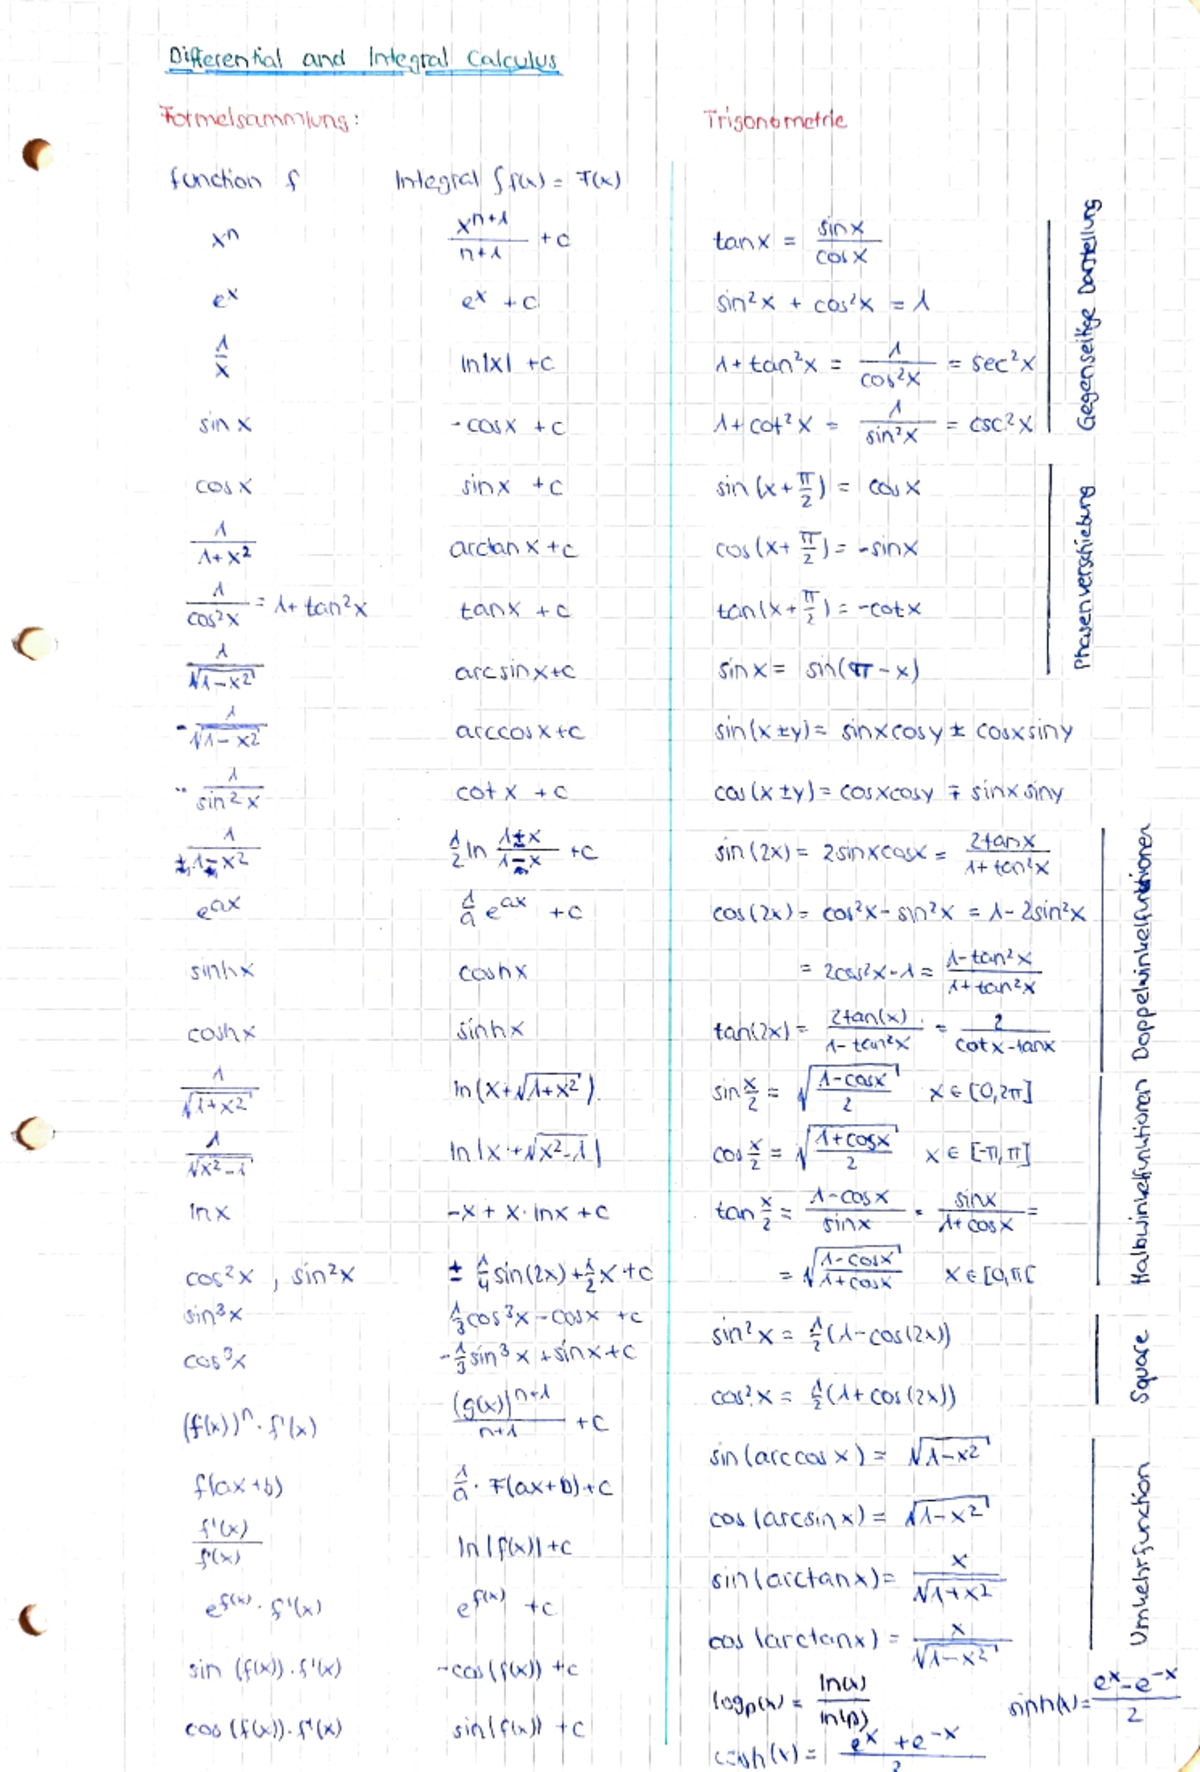 Differential and Integral Calculus
Formelsammlung:
function f    Integral ∫f(x) = F(x)
xⁿ    xⁿ⁺¹/(n+1) + c
eˣ    eˣ + c
1/x    ln|x| + c
sin x    -cos x + c
cos x    sin x + c
1/(1+x²)    arctan x + c
1/cos²x = 1+tan²x    tan x + c
1/√(1-x²)    arcsin x + c
-1/√(1-x²)    arccos x + c
-1/sin²x    cot x + c
1/(±1∓x²)    1/2 ln (1±x)/(1∓x) + c
e^(ax)    1/a e^(ax) + c
sinh x    cosh x
cosh x    sinh x
1/√(1+x²)    ln(x+√(1+x²))
1/√(x²-1)    ln|x+√(x²-1)|
ln x    -x + x·ln x + c
cos²x , sin²x    ± 1/4 sin(2x) + 1/2 x + c
sin³x    1/3 cos³x - cos x + c
cos³x    -1/3 sin³x + sin x + c
(f(x))ⁿ · f'(x)    (g(x))ⁿ⁺¹/(n+1) + c
f(ax+b)    1/a · F(ax+b) + c
f'(x)/f(x)    ln|f(x)| + c
e^(f(x)) · f'(x)    e^(f(x)) + c
sin (f(x)) · f'(x)    -cos(f(x)) + c
cos (f(x)) · f'(x)    sin(f(x)) + c
Trigonometrie
tan x = sin x/cos x
sin²x + cos²x = 1
1+tan²x = 1/cos²x = sec²x
1+cot²x = 1/sin²x = csc²x
Gegenseitige Darstellung
sin(x+π/2) = cos x
cos(x+π/2) = -sin x
tan(x+π/2) = -cot x
sin x = sin(π-x)
Phasenverschiebung
sin(x±y) = sin x cos y ± cos x sin y
cos(x±y) = cos x cos y ∓ sin x sin y
sin(2x) = 2 sin x cos x = 2tan x/(1+tan²x)
cos(2x) = cos²x - sin²x = 1 - 2sin²x
= 2cos²x - 1 = (1-tan²x)/(1+tan²x)
tan(2x) = 2tan(x)/(1-tan²x) = 2/(cot x - tan x)
Doppelwinkelfunktionen
sin x/2 = √((1-cos x)/2)    x ∈ [0,2π]
cos x/2 = √((1+cos x)/2)    x ∈ [-π,π]
tan x/2 = (1-cos x)/sin x = sin x/(1+cos x) =
= √((1-cos x)/(1+cos x))    x ∈ [0,π[
Halbwinkelfunktionen
sin²x = 1/2(1-cos(2x))
cos²x = 1/2(1+cos(2x))
Square
sin(arccos x) = √(1-x²)
cos(arcsin x) = √(1-x²)
sin(arctan x) = x/√(1+x²)
cos(arctan x) = x/√(1-x²)
Umkehrfunction
log_p(x) = ln(x)/ln(p)    sinh(x) = (eˣ-e⁻ˣ)/2
cosh(x) = (eˣ+e⁻ˣ)/2